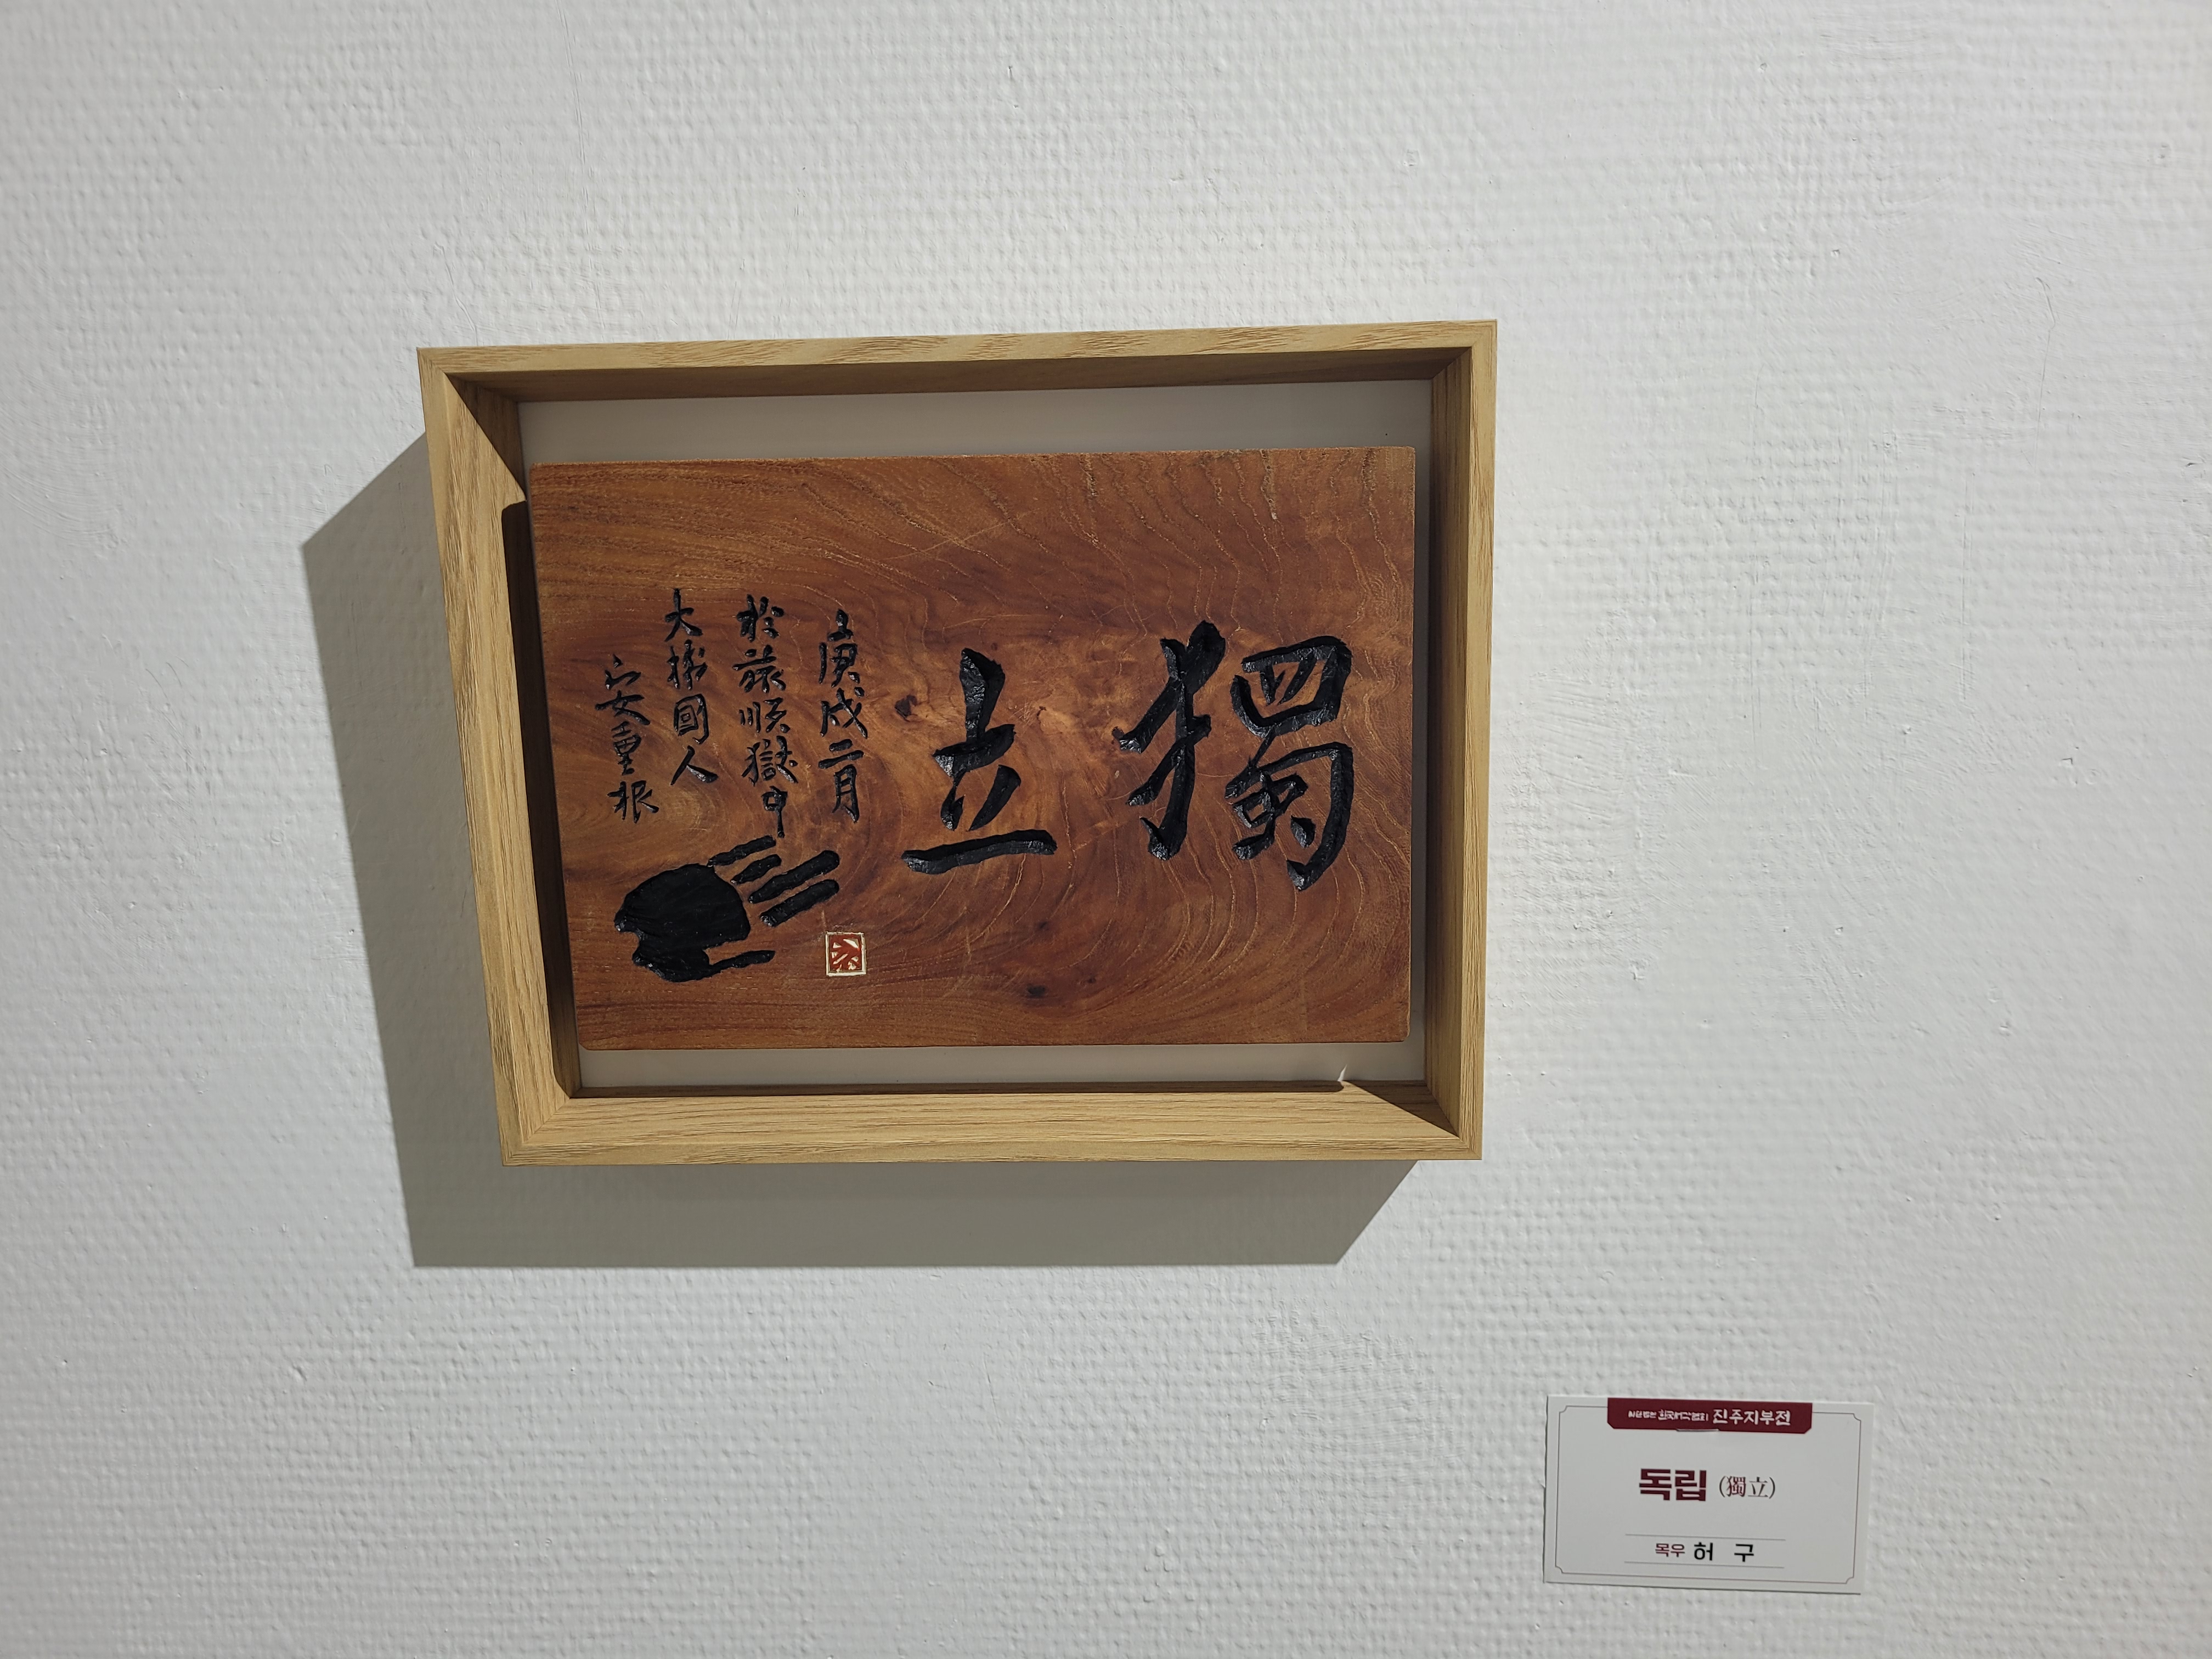 獨立
庚戌二月
於旅順獄中
大韓國人
安重根
진주지부전
독립 (獨立)
목우 허 구